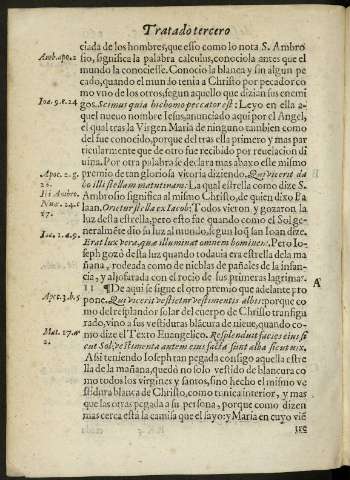 Tratado tercero
ciada de los hombres, que esso como lo nota S. Ambro
Amb. apo. 2
sio, significa la palabra calculus, conociola antes que el
mundo la conociesse. Conocio la blanca y sin algun pe
cado, quando el mundo tenia a Christo por pecador co
mo vno de los otros, segun aquello que dizian sus enemi
Ioa. 9. e. 24
gos. Scimus quia hic homo peccator est: Leyo en ella a-
quel nueuo nombre Iesus, anunciado aqui por el Angel,
el qual tras la Virgen Maria de ninguno tambien como
del fue conocido, porque del tras ella primero y mas par
ticularmente que de otro fue recibido por reuelacion di
uina. Por otra palabra se declara mas abaxo este mismo
Apoc. 2. g.
premio de tan gloriosa vitoria diziendo. Qui vicerit da
26.
bo illi stellam matutinam: La qual estrella como dize S.
Hi Ambro.
Ambrosio significa al mismo Christo, de quien dixo Ba
Nũe. 24. c
laan. Orietur stella ex Iacob: Todos vieron y gozaron la
17.
luz desta estrella, pero esto fue quando como el Sol ge-
neralmẽte dio su luz al mundo, segun loq̃ san Ioan dize.
Ioa. 1. a. 9.
Erat lux vera, quæ illuminat omnem hominem: Pero Io-
seph gozò desta luz quando todauia era estrella dela ma
ñana, rodeada como de nieblas de pañales de la infan-
cia, y aljofarada con el rocio de sus primeras lagrimas.
11 ¶ De aqui se sigue el otro premio que adelante pro
A
Apoc. 3. b. 5
pone. Qui vicerit vestietur vestimentis albis: porque co
mo del resplandor solar del cuerpo de Christo transfigu
rado, vino a sus vestiduras blãcura de nieue, quando co-
Mat. 17. a
mo dize el Texto Euangelico. Resplenduit facies eius si
2.
cut Sol, vestimenta autem eius facta sunt alba sicut nix.
Assi teniendo Ioseph tan pegada consigo aquella estre
lla de la mañana, quedò no solo vestido de blancura co
mo todos los virgines y santos, sino hecho el mismo ve
stidura blanca de Christo, como tunica interior, y mas
que las otras pegada a su persona, porque como dizen
mas cerca està la camisa que el sayo: y Maria en cuyo viẽ